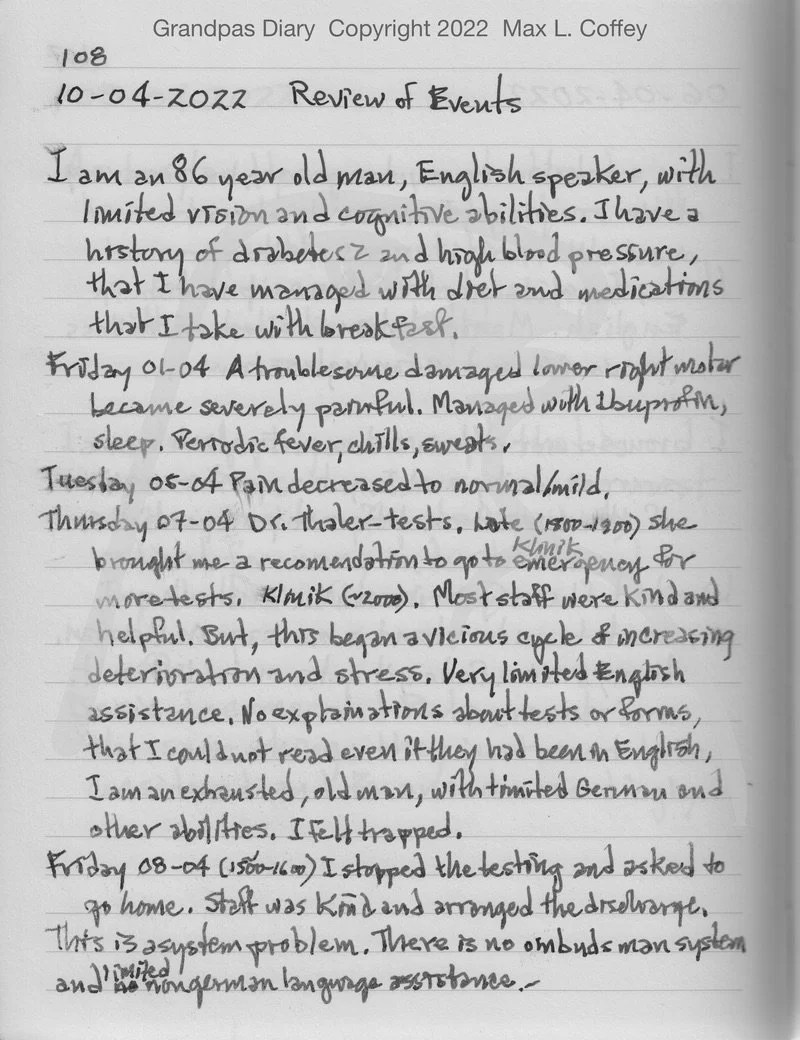 Grandpas Diary Copyright 2022 Max L. Coffey
108
10-04-2022 Review of Events
I am an 86 year old man, English speaker, with
limited vision and cognitive abilities. I have a
history of diabetes 2 and high blood pressure,
that I have managed with diet and medications
that I take with breakfast.
Friday 01-04 A troublesome damaged lower right molar
became severely painful. Managed with Ibuprofin,
sleep. Periodic fever, chills, sweats.
Tuesday 05-04 Pain decreased to normal/mild.
Thursday 07-04 Dr. Thaler-tests. Late (1800-1900) she
Klinik
brought me a recomendation to go to emergency for
more tests. Klinik (~2000). Most staff were kind and
helpful. But, this began a vicious cycle of increasing
deterioration and stress. Very limited English
assistance. No explainations about tests or forms,
that I could not read even if they had been in English,
I am an exhausted, old man, with limited German and
other abilities. I felt trapped.
Friday 08-04 (1500-1600) I stopped the testing and asked to
go home. Staff was kind and arranged the discharge.
This is a system problem. There is no ombudsman system
limited
and nongerman language assistance.-